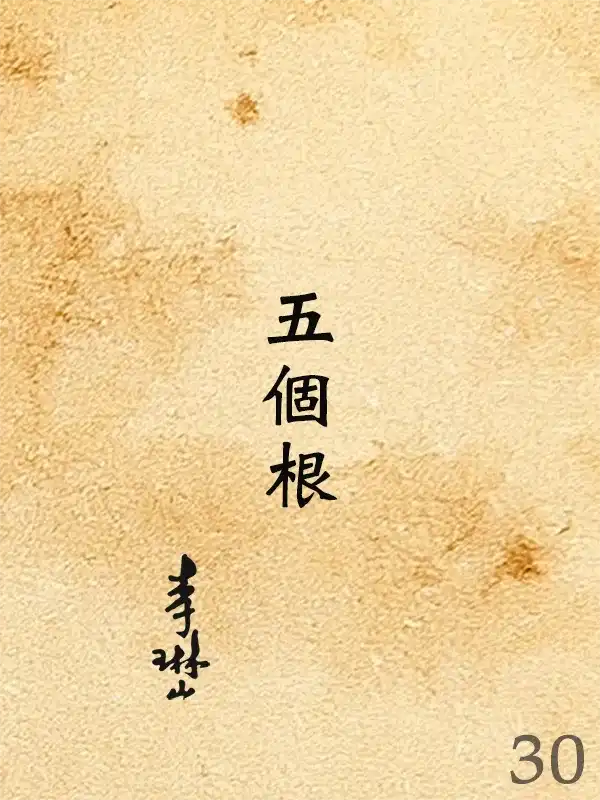 五個根
李琳山
30